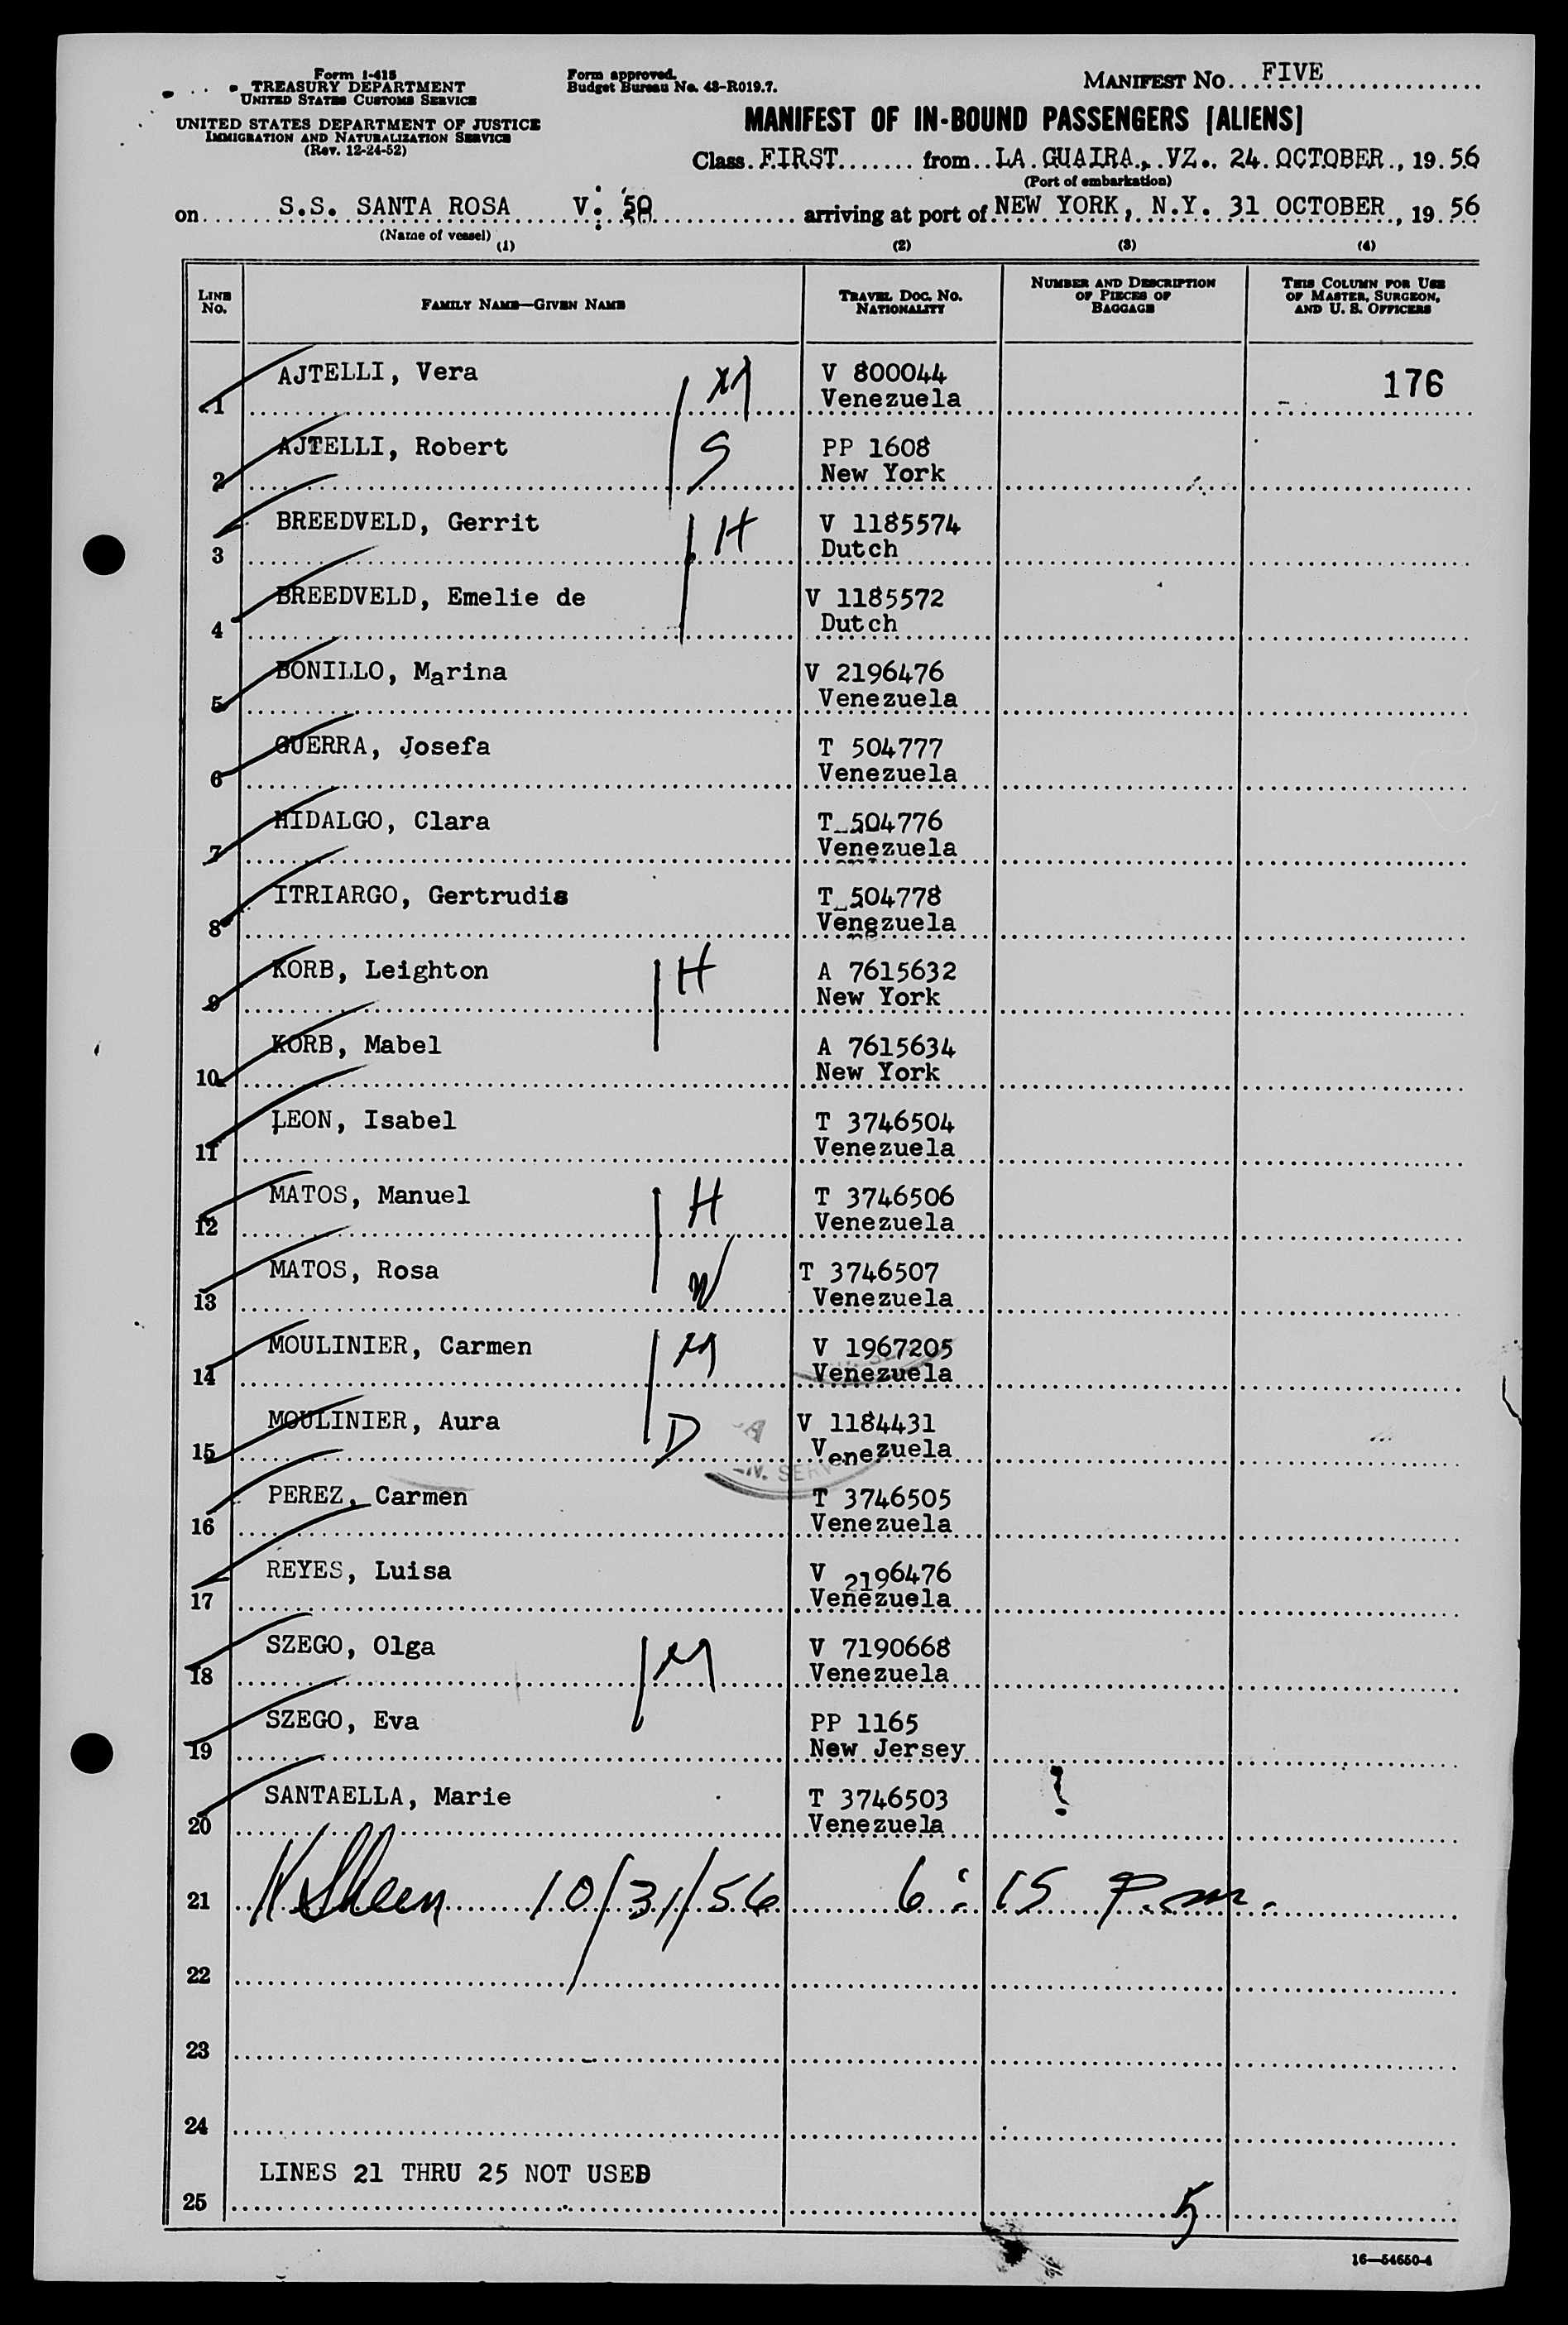 Form I-415
TREASURY DEPARTMENT
UNITED STATES CUSTOMS SERVICE
UNITED STATES DEPARTMENT OF JUSTICE
IMMIGRATION AND NATURALIZATION SERVICE
(Rev. 12-24-52)
Form approved.
Budget Bureau No. 43-R019.7.
MANIFEST NO. FIVE
MANIFEST OF IN-BOUND PASSENGERS (ALIENS)
Class FIRST from LA GUAIRA, VZ. 24 OCTOBER, 1956
(Port of embarkation)
on S.S. SANTA ROSA V: 50 arriving at port of NEW YORK, N.Y. 31 OCTOBER, 1956
(Name of vessel)
(1) (2) (3) (4)
LINE NO. FAMILY NAME—GIVEN NAME TRAVEL DOC. NO. NATIONALITY NUMBER AND DESCRIPTION OF PIECES OF BAGGAGE THIS COLUMN FOR USE OF MASTER, SURGEON, AND U. S. OFFICERS
1 AJTELLI, Vera M V 800044 176
Venezuela
2 AJTELLI, Robert S PP 1608
New York
3 BREEDVELD, Gerrit H V 1185574
Dutch
4 BREEDVELD, Emelie de V 1185572
Dutch
5 BONILLO, Marina V 2196476
Venezuela
6 GUERRA, Josefa T 504777
Venezuela
7 HIDALGO, Clara T 504776
Venezuela
8 ITRIARGO, Gertrudis T 504778
Venezuela
9 KORB, Leighton H A 7615632
New York
10 KORB, Mabel A 7615634
New York
11 LEON, Isabel T 3746504
Venezuela
12 MATOS, Manuel H T 3746506
Venezuela
13 MATOS, Rosa W T 3746507
Venezuela
14 MOULINIER, Carmen M V 1967205
Venezuela
15 MOULINIER, Aura D V 1184431
Venezuela
16 PEREZ, Carmen T 3746505
Venezuela
17 REYES, Luisa V 2196476
Venezuela
18 SZEGO, Olga M V 7190668
Venezuela
19 SZEGO, Eva PP 1165
New Jersey
20 SANTAELLA, Marie T 3746503
Venezuela
21 10/31/56 6:15 P.m.
22
23
24
LINES 21 THRU 25 NOT USED
25 5
16—54650-4